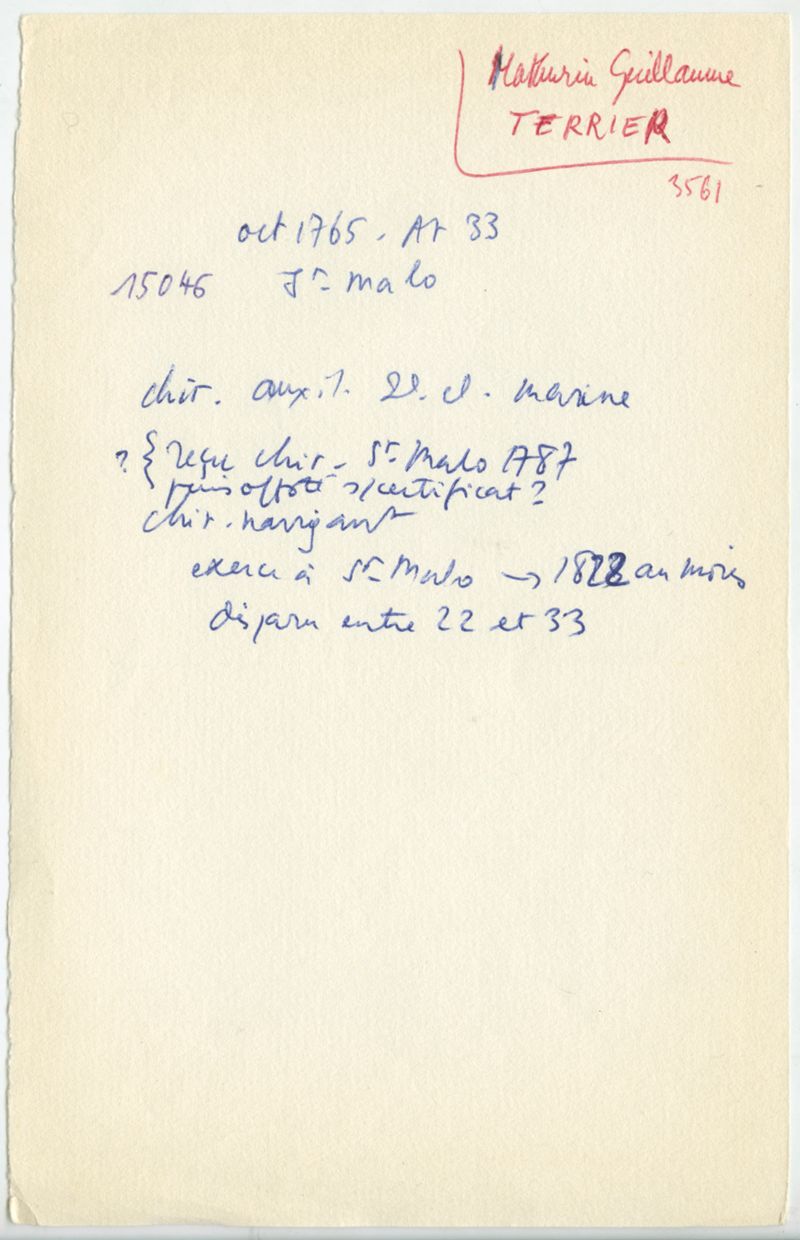 Mathurin Guillaume
TERRIER
3561
oct 1765. Av 33
15046 St-Malo
chir. auxil. 2e. cl. marine
? { reçu chir. St-Malo 1787
puis s/certificat ?
chir. navigant
exerce à St-Malo → 1822 au moins
disparu entre 22 et 33